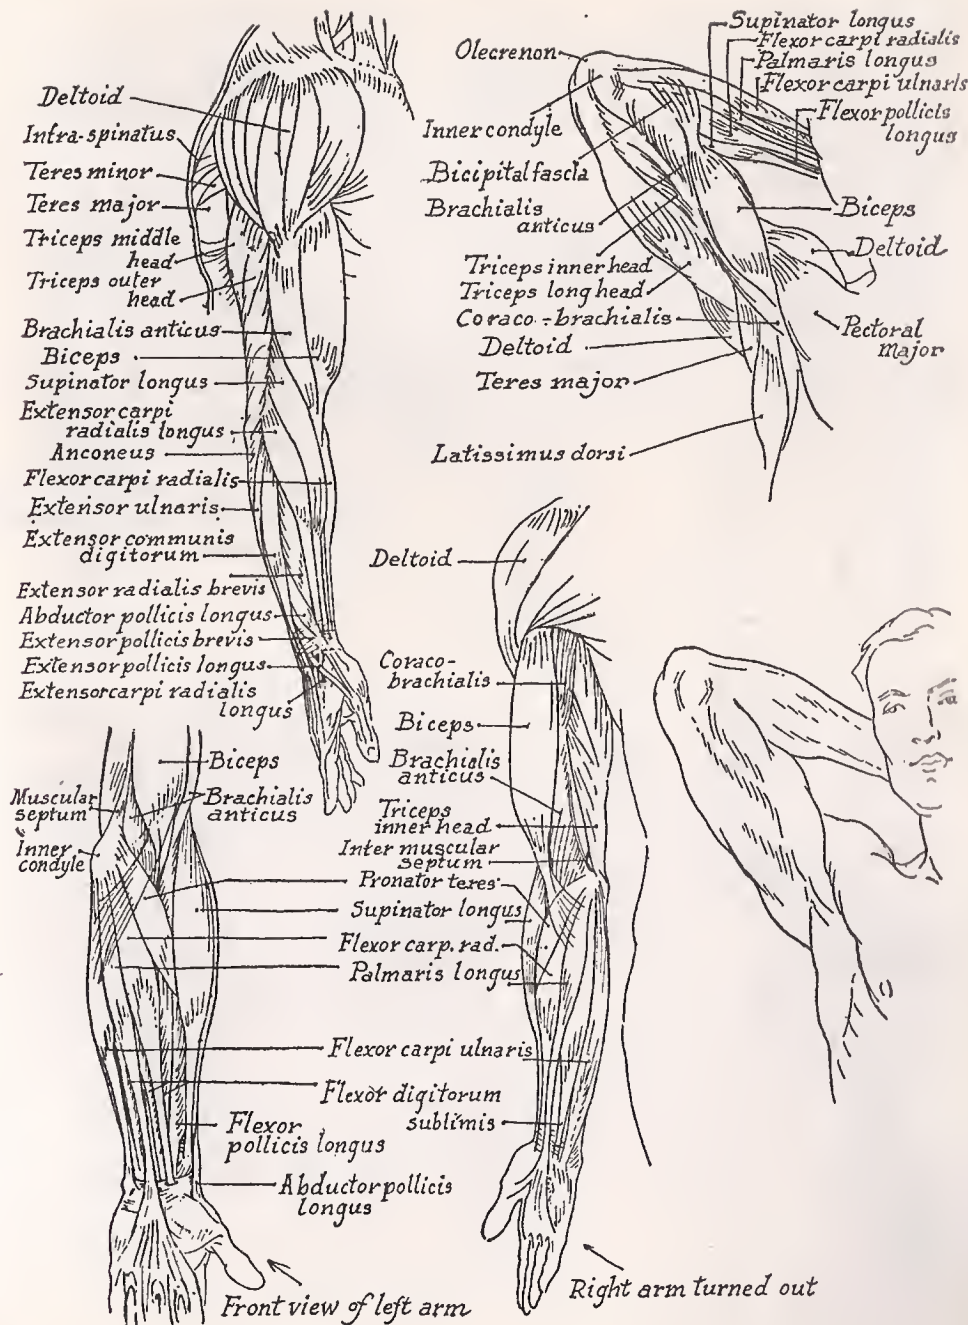 Deltoid
Infra-spinatus
Teres minor
Teres major
Triceps middle
head
Triceps outer
head
Brachialis anticus
Biceps
Supinator longus
Extensor carpi
radialis longus
Anconeus
Flexor carpi radialis
Extensor ulnaris
Extensor communis
digitorum
Extensor radialis brevis
Abductor pollicis longus
Extensor pollicis brevis
Extensor pollicis longus
Extensor carpi radialis
longus
Olecrenon
Inner condyle
Bicipital fascia
Brachialis
anticus
Triceps inner head
Triceps long head
Coraco-brachialis
Deltoid
Teres major
Latissimus dorsi
Supinator longus
Flexor carpi radialis
Palmaris longus
Flexor carpi ulnaris
Flexor pollicis
longus
Biceps
Deltoid
Pectoral
major
Biceps
Muscular
septum
Brachialis
anticus
Inner
condyle
Deltoid
Coraco-
brachialis
Biceps
Brachialis
anticus
Triceps
inner head
Inter muscular
septum
Pronator teres
Supinator longus
Flexor carp. rad.
Palmaris longus
Flexor carpi ulnaris
Flexor digitorum
sublimis
Flexor
pollicis longus
Abductor pollicis
longus
Front view of left arm
Right arm turned out